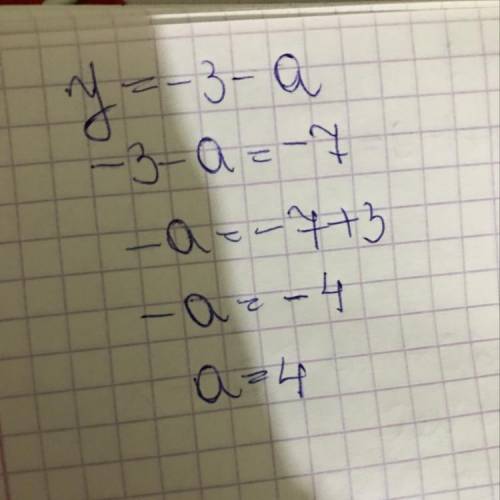 y = -3 - a
-3 - a = -7
-a = -7+3
-a = -4
a = 4